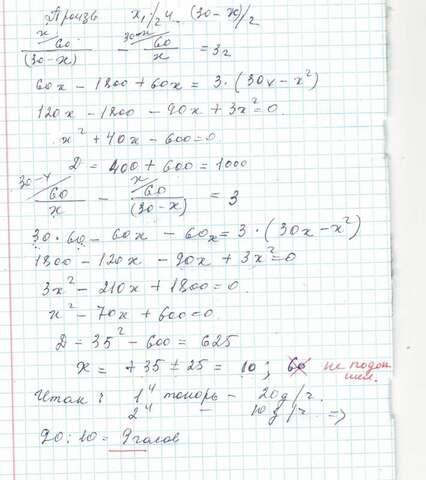 Произв x₁/2 ч. (30-x)/2
x 60/(30-x) - 30-x 60/x = 3
60x - 1800 + 60x = 3·(30x - x²)
120x - 1800 - 90x + 3x² = 0.
x² + 40x - 600 = 0
D = 400 + 600 = 1000
60/x - x 60/(30-x) = 3
30·60 - 60x - 60x = 3·(30x - x²)
1800 - 120x - 90x + 3x² = 0
3x² - 210x + 1800 = 0.
x² - 70x + 600 = 0
D = 35² - 600 = 625
x = +35 ± 25 = 10; 60 не подош
шел.
Итак: 1ч токарь - 20д/ч.
2ч 10д/ч. =>
90:10 = 9часов